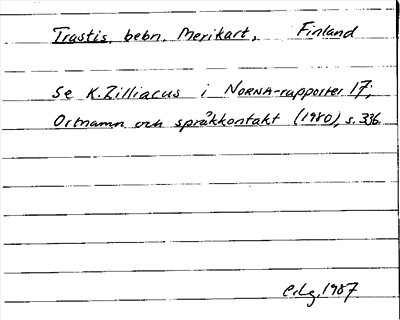 Trastis, bebn. Merikart, Finland
Se K. Zilliacus i NORNA-rapporter 17;
Ortnamn och språkkontakt (1980), s. 336.
1987